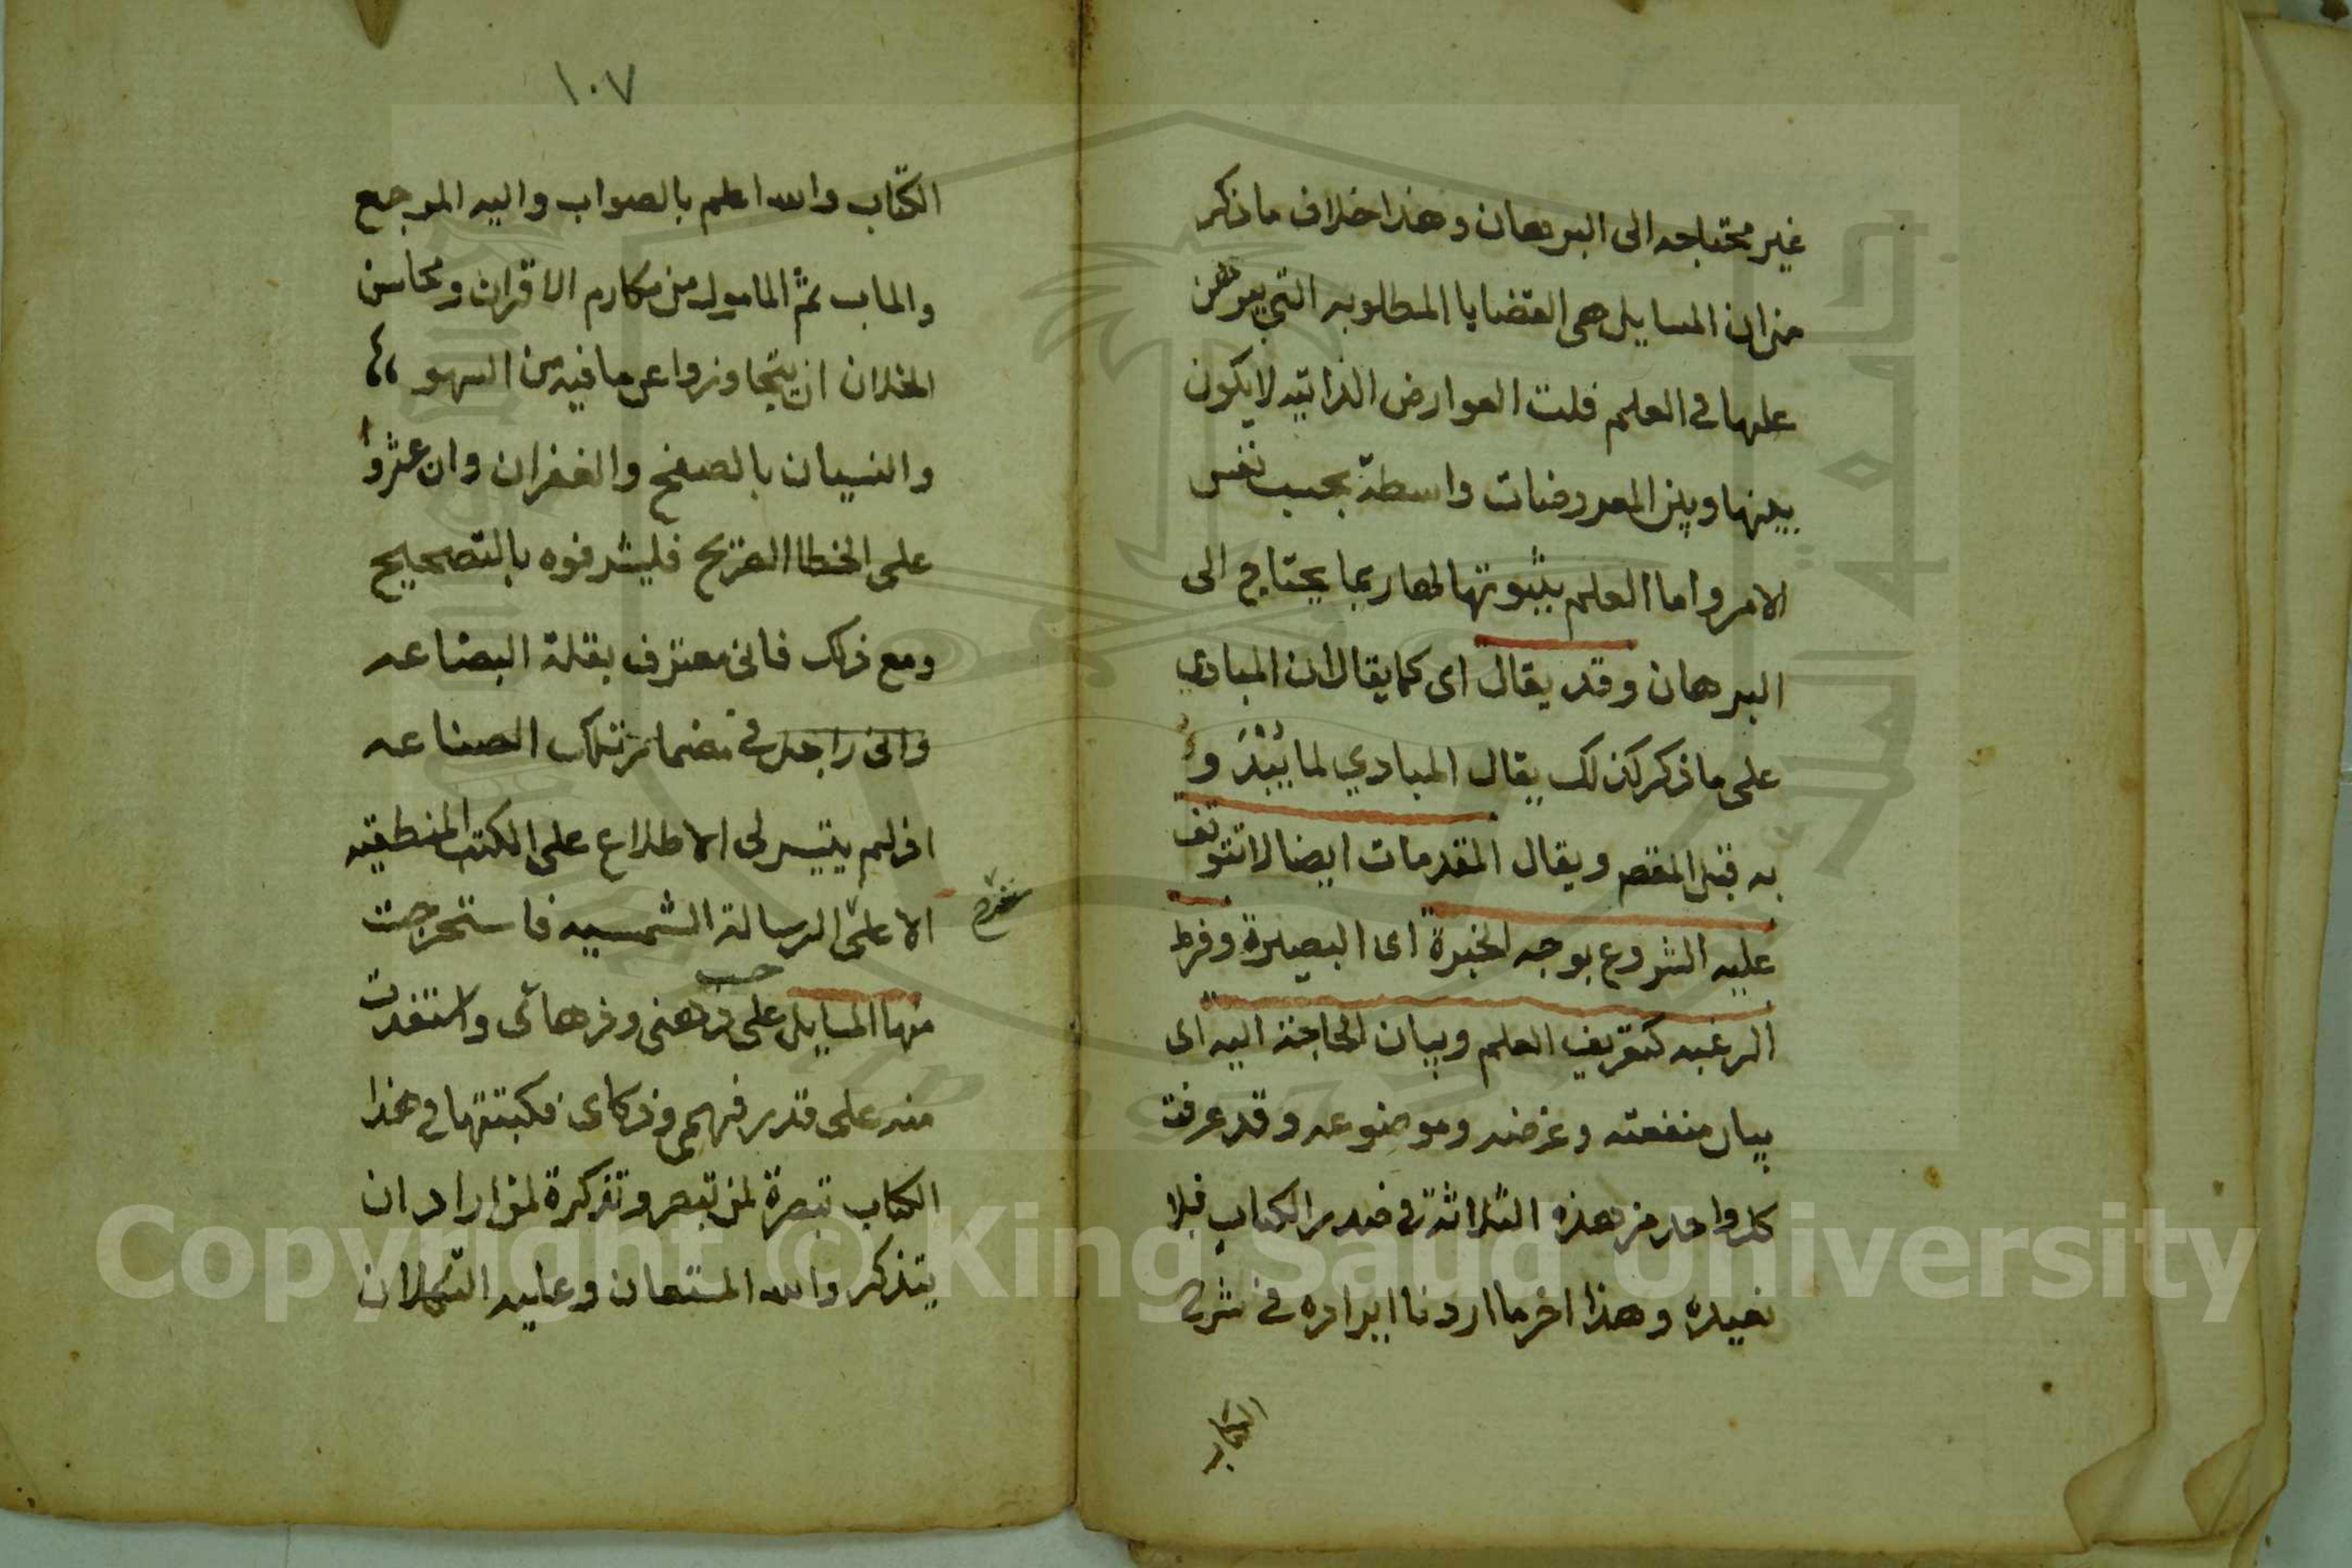 غير محتاجه الى البرهان وهذا خلاف ما ذكر
من ان المسايل هى القضايا المطلوبه التي يبرهن
عليها في العلم قلت العوارض الذاتيه لا يكون
بينها وبين المعروضات واسطة بحسب نفس
الامر واما العلم بثبوتها لها ربما يحتاج الى
البرهان وقد يقال اى كما يقال ان المبادي
على ما ذكر كذلك يقال المبادي لما يُبْدَؤ
به قبل المقصم ويقال المقدمات ايضا لا تتوقف
عليه الشروع بوجه الخبرة اى البصيرة وفرط
الرغبه كتعريف العلم وبيان الحاجة اليه اى
بيان منفعته وغرضه وموضوعه وقد عرفت
كل واحد من هذه الثلاثة في صدر الكتاب فلا
نعيده وهذا اخر ما اردنا ايراده في شرح
الكتاب
١٠٧
الكتاب والله اعلم بالصواب واليه المرجع
والماب ثم المامول من مكارم الاقران ومحاسن
الخلان ان يتجاوزوا عن ما فيه من السهو
والنسيان بالصفح والغفران وان عثروا
على الخطا الصريح فليشرفوه بالتصحيح
ومع ذلك فانى معترف بقلة البضاعه
وانى راجل في مضمار تلك الصناعه
اذ لم يتيسر لى الاطلاع على الكتب المنطقيه
الا على الرسالة الشمسيه فاستخرجت
شرح
منها المسايل على حسب ذهنى وذهائى واستفدت
منه على قدر فهمى وذكاى فكبتتها في هذا
الكتاب تبصرة لمن تبصر وتذكرة لمن اراد ان
يتذكر والله المستعان وعليه التكلان
Copyright © King Saud University